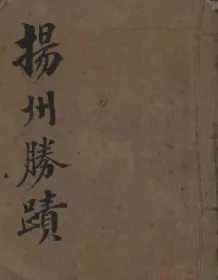 揚州勝蹟